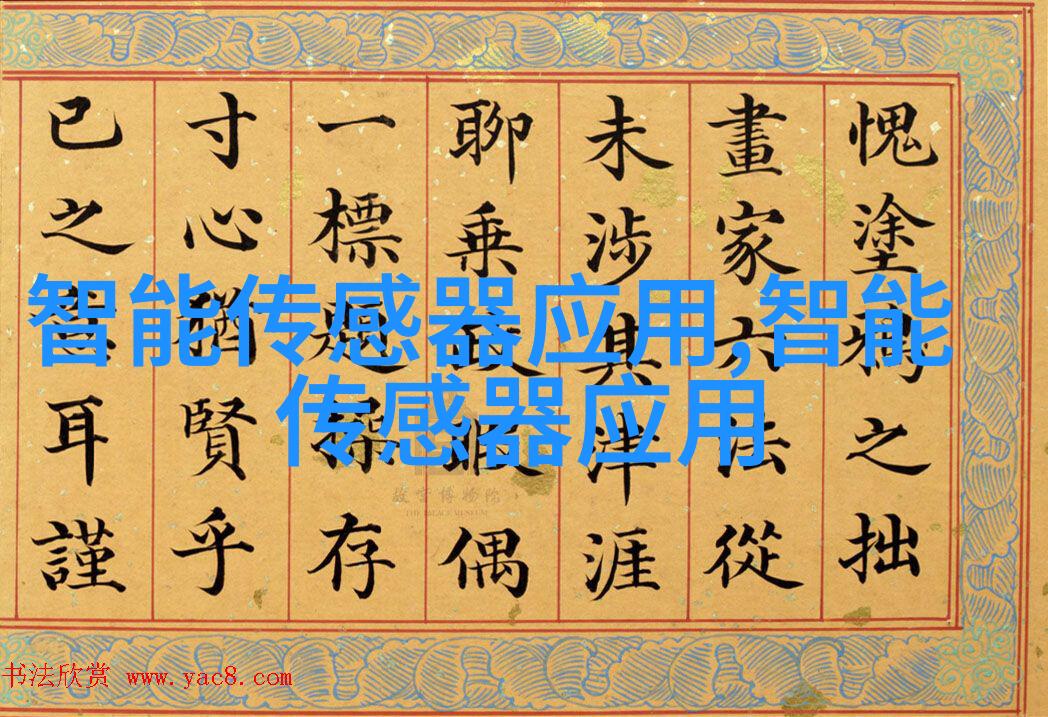 愧塗鴉之拙
畫家六法從
未涉其津涯
聊乘政暇偶
一標題操存
寸心猶賢乎
已之意耳謹
智能传感器应用,智能
传感器应用
故宫博物院
THE PALACE MUSEUM
书法欣赏 www.yac8.com